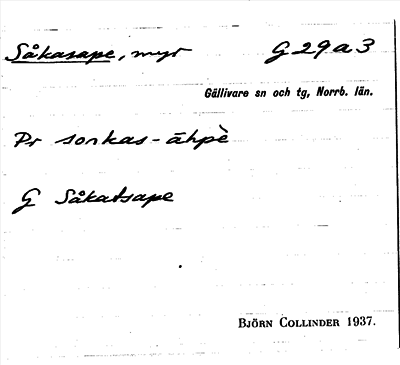 Såkasape, myr G 29 a 3
Gällivare sn och tg, Norrb. län.
Pr sorkas-āhpè
G Såkatsape
BJÖRN COLLINDER 1937.